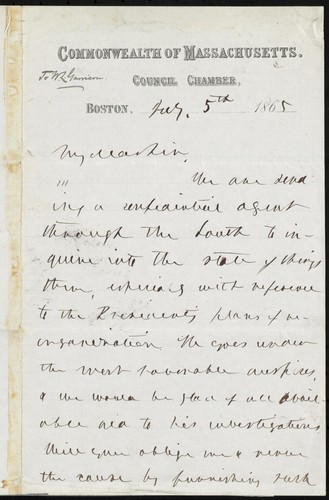 COMMONWEALTH OF MASSACHUSETTS.
To W L Garrison
COUNCIL CHAMBER,
BOSTON, July, 5th 1865
My dear Sir,
We are send
ing a confidential agent
through the South to in-
quire into the state of things
there, especially with reference
to the President's plans of re-
organization. He goes under
the most favorable auspices,
& we would be glad of all avail-
able aid to his investigations.
Will you oblige me & serve
the cause by furnishing such